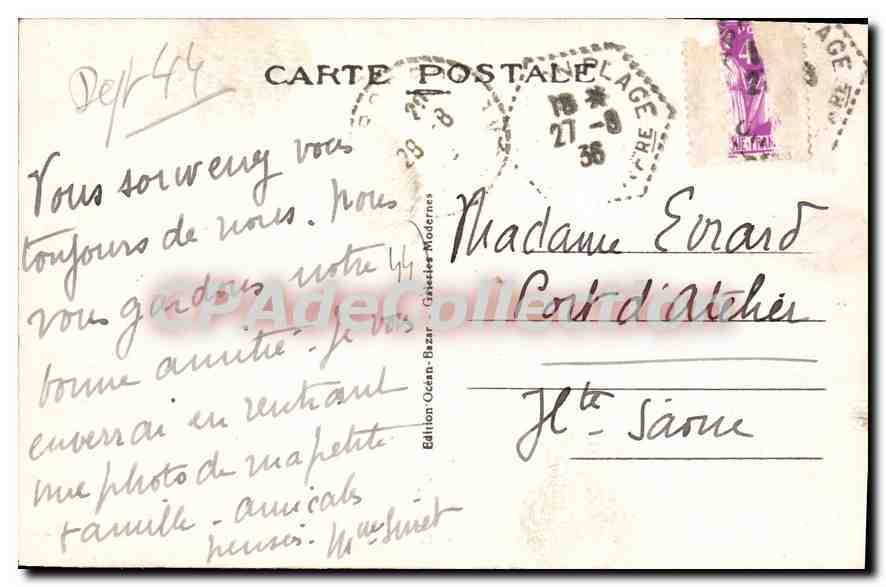 Dept 44
CARTE POSTALE
18 *
27 -8
36
PLAGE
28 -8
PLAGE
Vous souvenez vous
toujours de nous. Nous
vous gardons notre
bonne amitié. Je vous
enverrai en rentrant
une photo de ma petite
famille - amicales
pensées. Mme
44
Edition Océan-Bazar - Galeries Modernes
Madame Evrard
Port d'Atelier
Hte Saône
CPAdeCollection